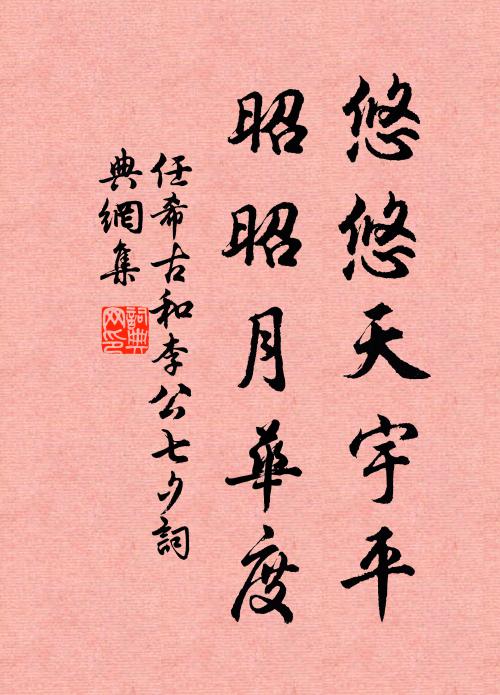 悠悠天宇平
昭昭月華度
任希古和李公七夕詞
典網集
詞典網印